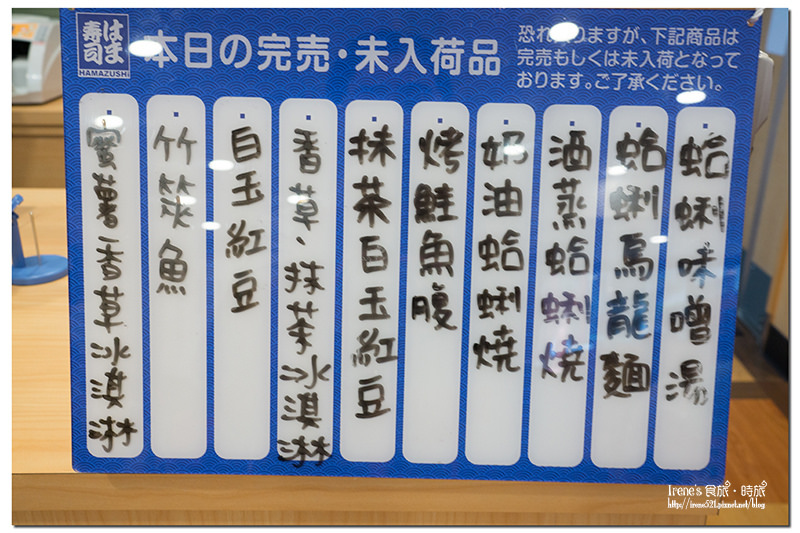 はま
寿司
HAMAZUSHI
本日の完売・未入荷品
恐れ入りますが、下記商品は
完売もしくは未入荷となって
おります。ご了承ください。
蛤蜊味噌湯
蛤蜊烏龍麵
酒蒸蛤蜊燒
奶油蛤蜊燒
烤鮭魚腹
抹茶白玉紅豆
香草、抹茶冰淇淋
白玉紅豆
竹筴魚
蜜薯香草冰淇淋
Irene's 食旅・時旅
http://irene521.pixnet.net/blog